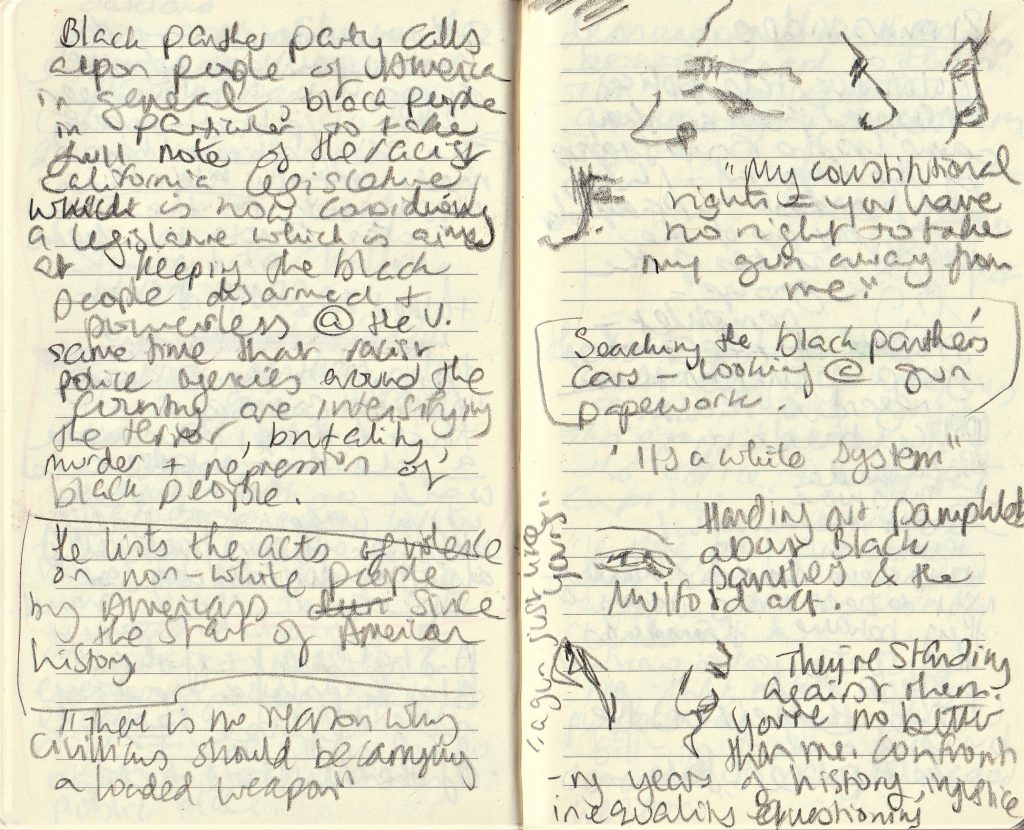 Black panther party calls
apon people of America
in general, black people
in particular to take
full note of the racist
California legislature,
which is now considering
a legislature which is aimed
at keeping the black
people disarmed +
powerless @ the V.
same time that racist
police agencies around the
country are intensifying
the terror, brutality,
murder + repression of
black people.
He lists the acts of violence
on non-white people
by Americans since
the start of American
history
"There is no reason why
civillians should be carrying
a loaded weapon"
"My constitutional
rights = you have
no right to take
my gun away from
me."
Seaching the black panther's
cars - looking @ gun
papework.
'Its a white system"
"a gun just like
yours".
Handing out pamphlets
about Black
panthes & the
Mulford act.
They're standing
against them.
you're no better
than me. confront
-ing years of history, injustice
inequality questioning